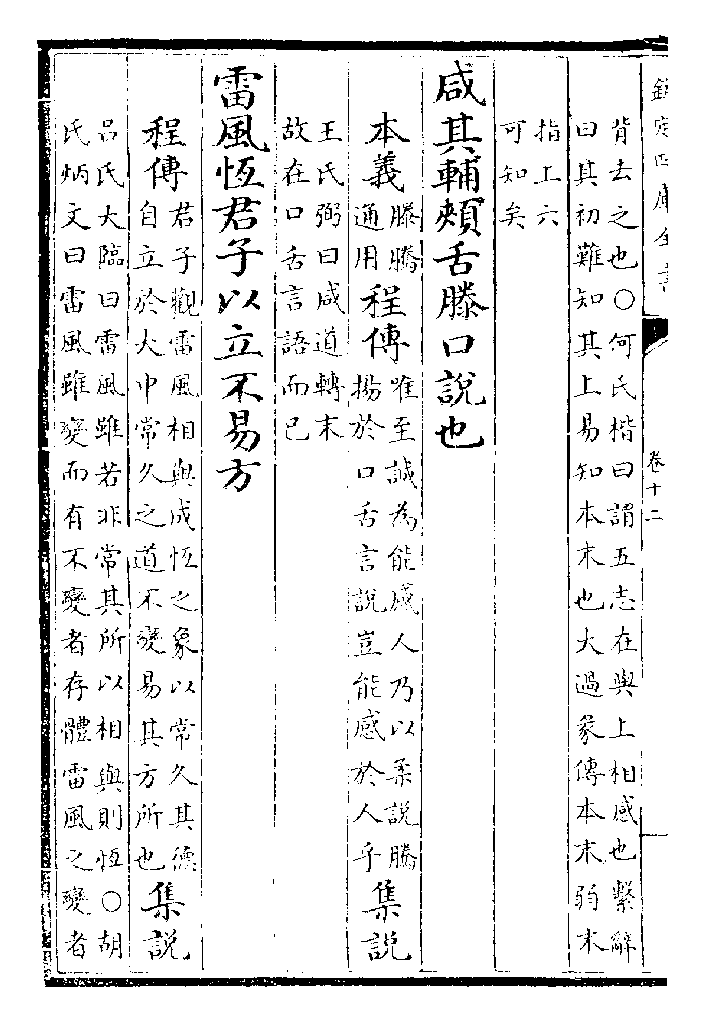 欽定四庫全書
卷十二
背去之也○何氏楷曰謂五志在與上相感也繫辭
曰其初難知其上易知本末也大過彖傳本末弱末
指上六
可知矣
咸其輔頰舌滕口說也
本義
滕騰
通用
程傳
唯至誠為能感人乃以柔說騰
揚於口舌言說豈能感於人乎
集說
王氏弼曰咸道轉末
故在口舌言語而已
雷風恆君子以立不易方
程傳
君子觀雷風相與成恆之象以常久其德
自立於大中常久之道不變易其方所也
集說
呂氏大臨曰雷風雖若非常其所以相與則恆○胡
氏炳文曰雷風雖變而有不變者存體雷風之變者